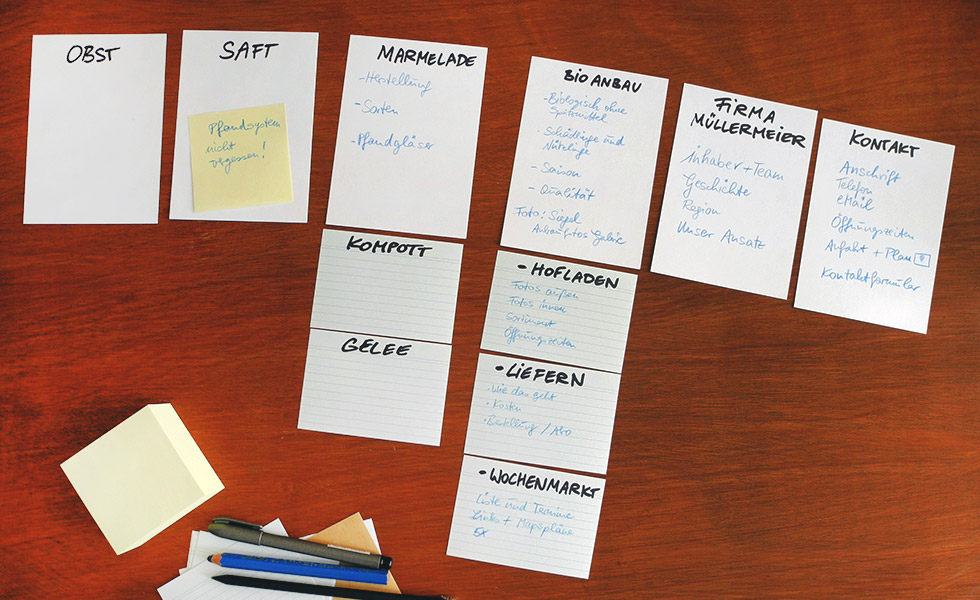 OBST
SAFT
Pfandsystem
nicht
vergessen!
MARMELADE
-Herstellung
-Sorten
-Pfandgläser
KOMPOTT
GELEE
BIO ANBAU
-Biologisch ohne
Spritzmittel
- Schädlinge und
Nützlinge
- Saison
- Qualität
Foto: Siegel
Anbaufotos Galerie
- HOFLADEN
Fotos außen
Fotos innen
Sortiment
Öffnungszeiten
- LIEFERN
- Wie das geht
- Kosten
- Bestellung / ABO
- WOCHENMARKT
Liste und Termine
Links + Mapspläne
5x
FIRMA
MÜLLERMEIER
inhaber + Team
Geschichte
Region
Unser Ansatz
KONTAKT
Anschrift
Telefon
eMail
Öffnungszeiten
Anfahrt + Plan
Kontaktformular